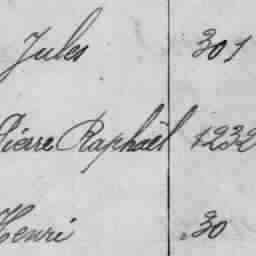 Jules 301
Pierre Raphaël 1232
Henri 30